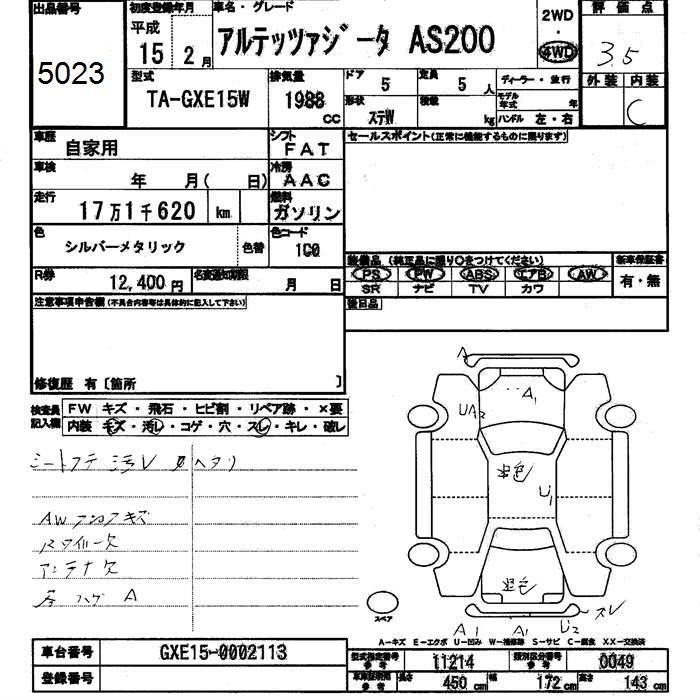 出品番号 初度登録年月 車名・グレード 2WD 評価点
5023 平成 15 2月 アルテッツァジータ AS200 4WD 3.5
型式 排気量 ドア 5 定員 5人 ディーラー・並行 外装 内装
TA-GXE15W 1988 CC 形状 ステW 積載 kg モデル年式 年 ハンドル 左・右 C
車歴 自家用 シフト FAT セールスポイント(正常に機能するものに限ります)
車検 年 月( 日) 冷房 AAC
走行 17万1千620 km 燃料 ガソリン
色 シルバーメタリック 色替 色コード 1C0 装備品(純正品に限り○をつけてください) 新車保証書
R券 12,400円 名変通知期限 月 日 PS PW ABS エアB AW 有・無
SR ナビ TV カワ
注意事項申告欄(不具合内容等は具体的に記入して下さい) 後日品
修復歴 有〔箇所 〕
検査員記入欄 FW キズ・飛石・ヒビ割・リペア跡・×要
内装 キズ・汚レ・コゲ・穴・スレ・キレ・破レ
ヘタリ
AW キズ
欠
アンテナ欠
ハゲ A
A
A1
UA2
U1
スレ
A1 A1 U2
スペア
A-キズ E-エクボ U-凹み W-補修跡 S-サビ C-腐食 XX-交換済
車台番号 GXE15-0002113 型式指定番号 参考 11214 類別区分番号 参考 0049
登録番号 車車証明用 参考 長さ 450cm 幅 172cm 高さ 143cm